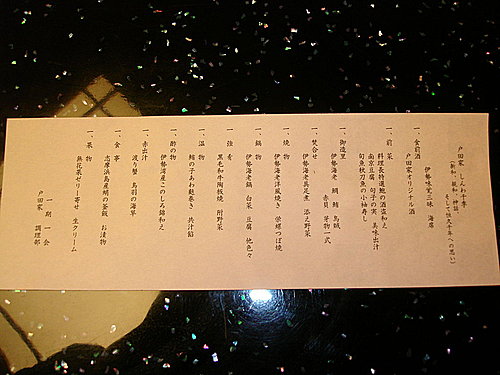 戸田家 しんわ千季
(新和、親和、神話
そして恒久千年への思い)
伊勢味覚三昧 海席
一、食前酒
戸田家オリジナル酒
一、前 菜
料理長特選鮑の酒盗和え
南京豆腐 旬子の実 美味出汁
旬魚秋刀魚の小袖寿し
一、御造里
伊勢海老 鯛 鮪 烏賊
赤貝 芽物一式
一、焚合せ
伊勢海老具足煮 添え野菜
一、焼 物
伊勢海老洋風焼き 栄螺つぼ焼
一、鍋 物
伊勢海老鍋 白菜 豆腐 他色々
一、強 肴
黒毛和牛陶板焼 附野菜
一、温 物
鮪の子あわ麩巻き 共汁餡
一、酢の物
伊勢湾産このしろ錦和え
一、赤出汁
渡り蟹 鳥羽の海草
一、食 事
志摩浜島産鯛の釜飯 お漬物
一、果 物
無花果ゼリー寄せ 生クリーム
一 期 一 会
戸田家 調理部